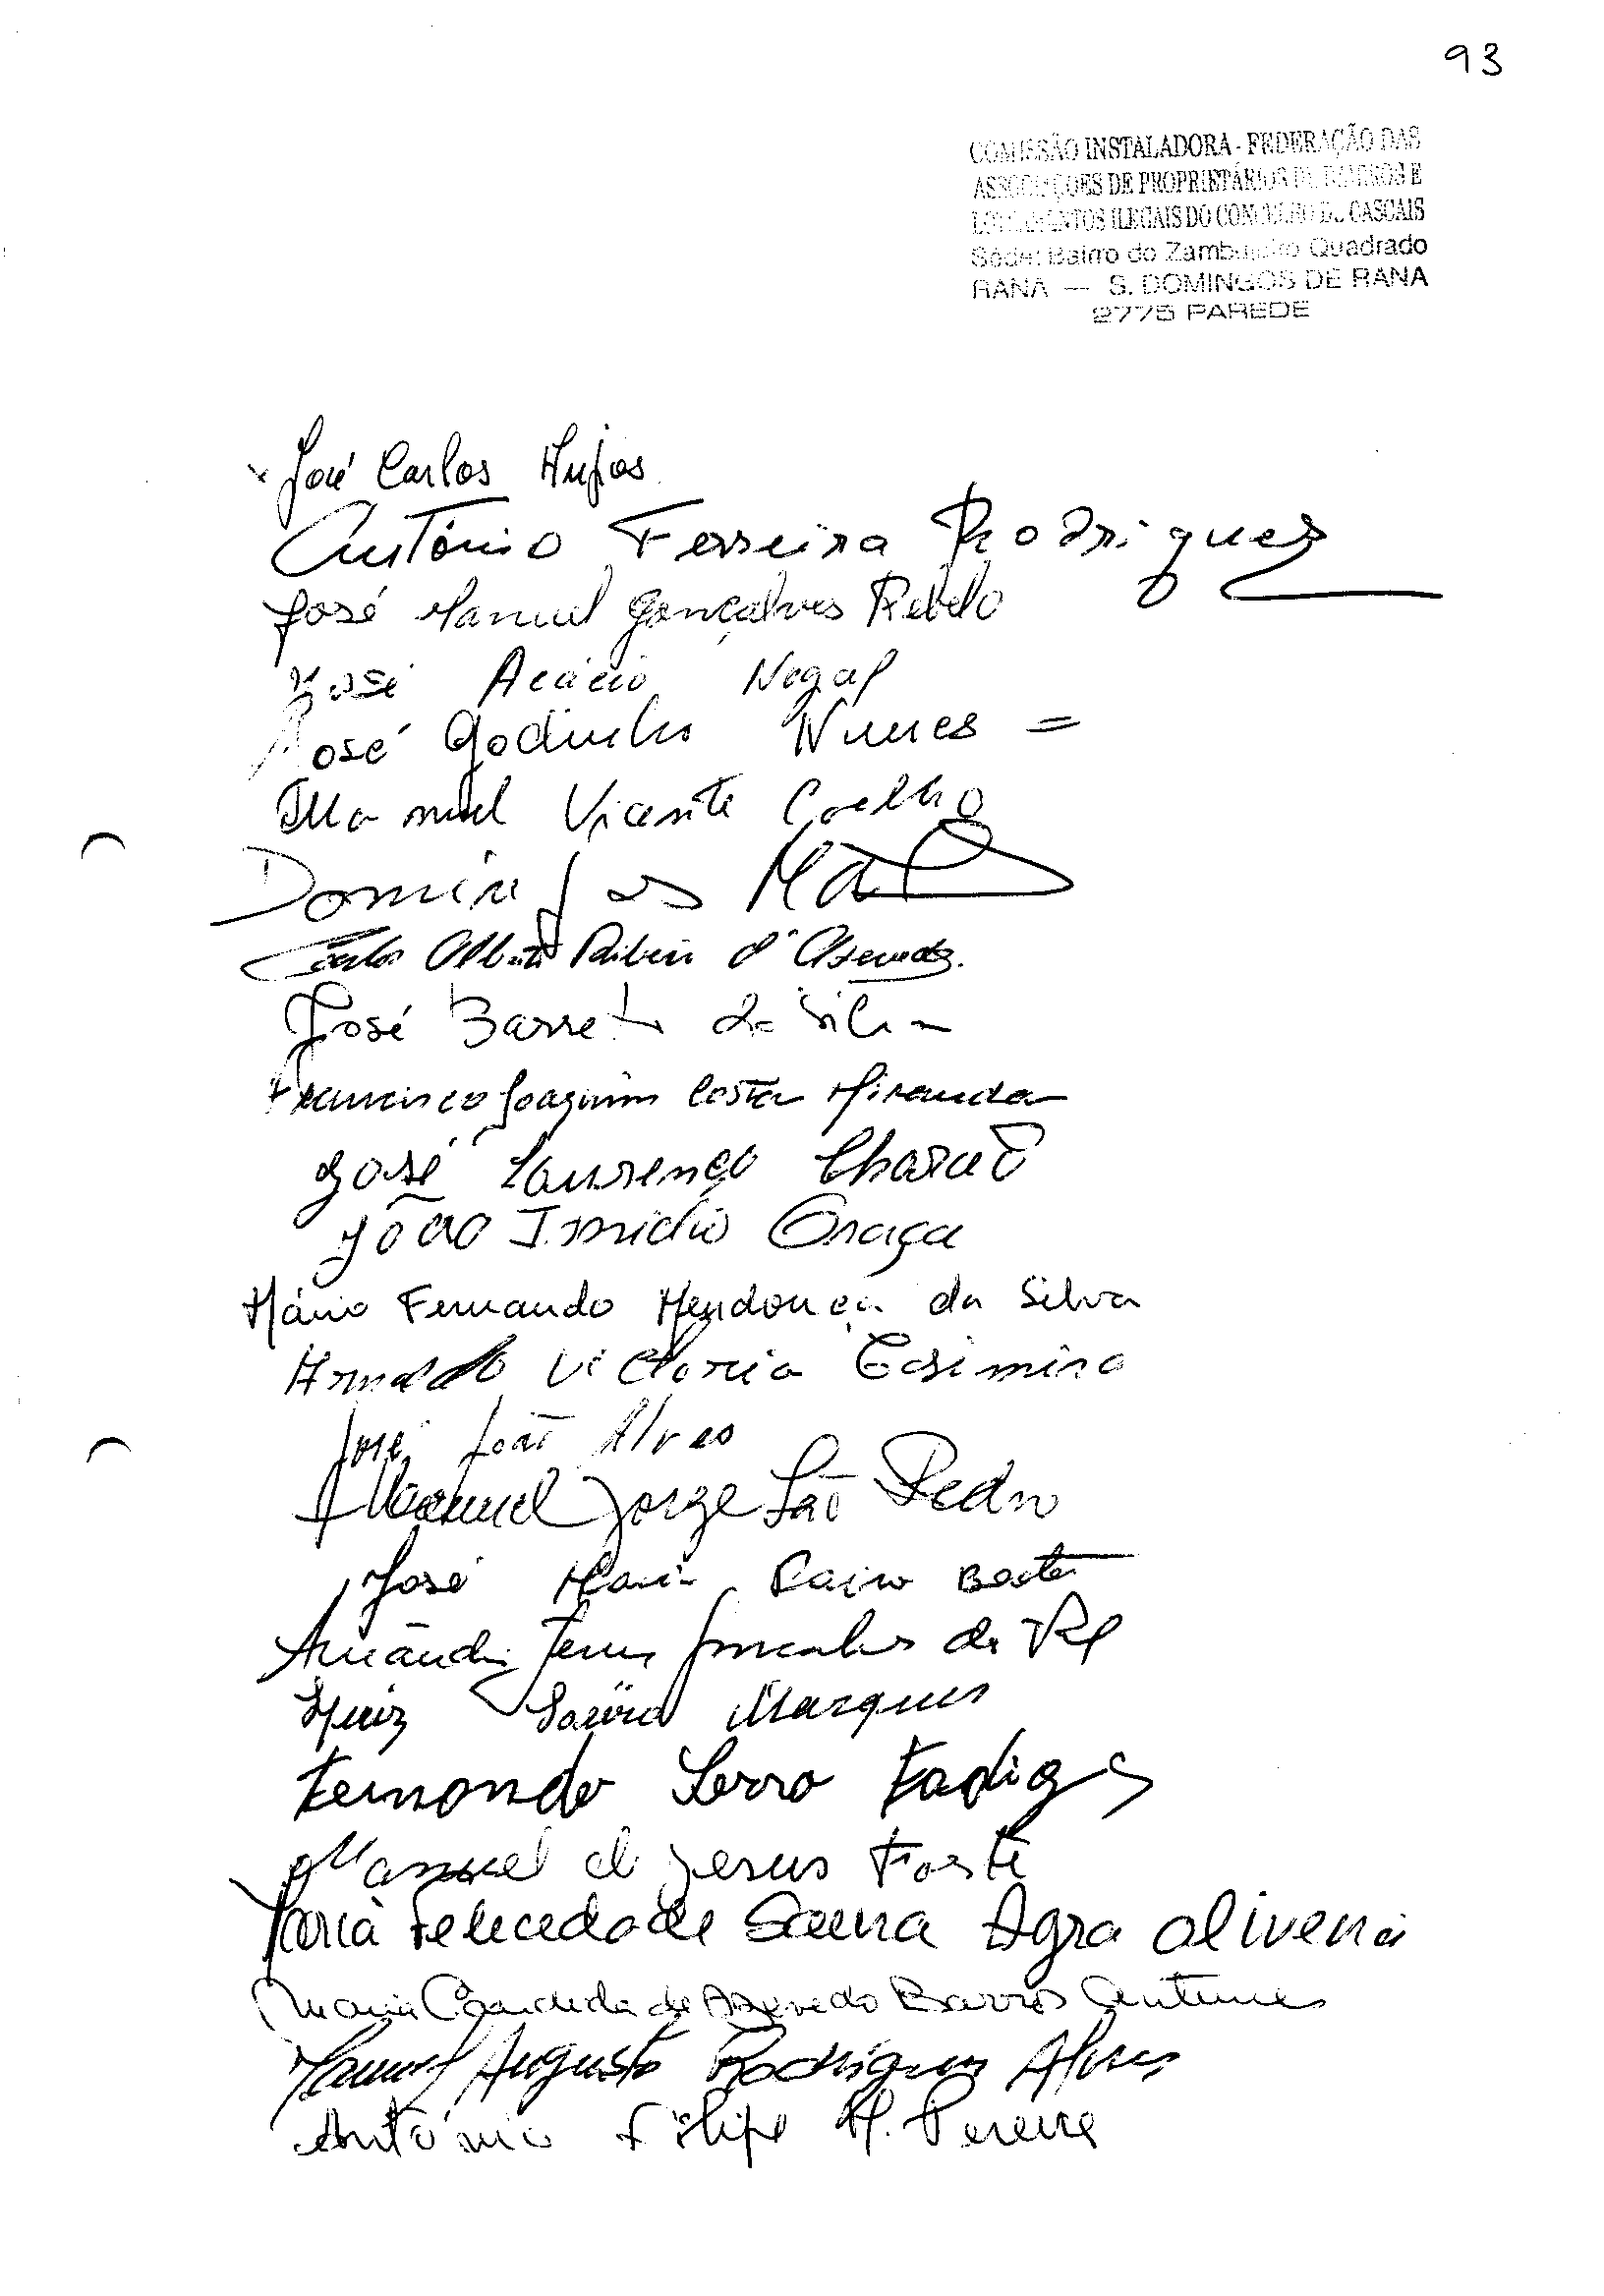 93
COMISSÃO INSTALADORA - FEDERAÇÃO DAS
ASSOCIAÇÕES DE PROPRIETÁRIOS DE BAIRROS E
LOTEAMENTOS ILEGAIS DO CONCELHO DE CASCAIS
Séde: Bairro do Zambujeiro Quadrado
RANA — S. DOMINGOS DE RANA
2775 PAREDE
José Carlos
António Ferreira Rodrigues
José Manuel Gonçalves Rebelo
José Acácio Nogal
José Godinho Nunes =
Manuel Vicente Coelho
Domingos
Carlos Alberto Ribeiro d'Azevedo.
José Barreto da Silva
Francisco Joaquim Costa Miranda
José Lourenço
João Graça
Mário Fernando Mendonça da Silva
Arnaldo Victoria Casimiro
José João Alves
Manuel Jorge São Pedro
José Maria
Gonçalves da
Luiz Marques
Fernando Serra Fadigas
Manuel de Jesus Forte
Maria Felecedade Agra
Maria Candida de Azevedo Barros Antunes
Manuel Augusto Rodrigues Alves
António Filipe M. Pereira